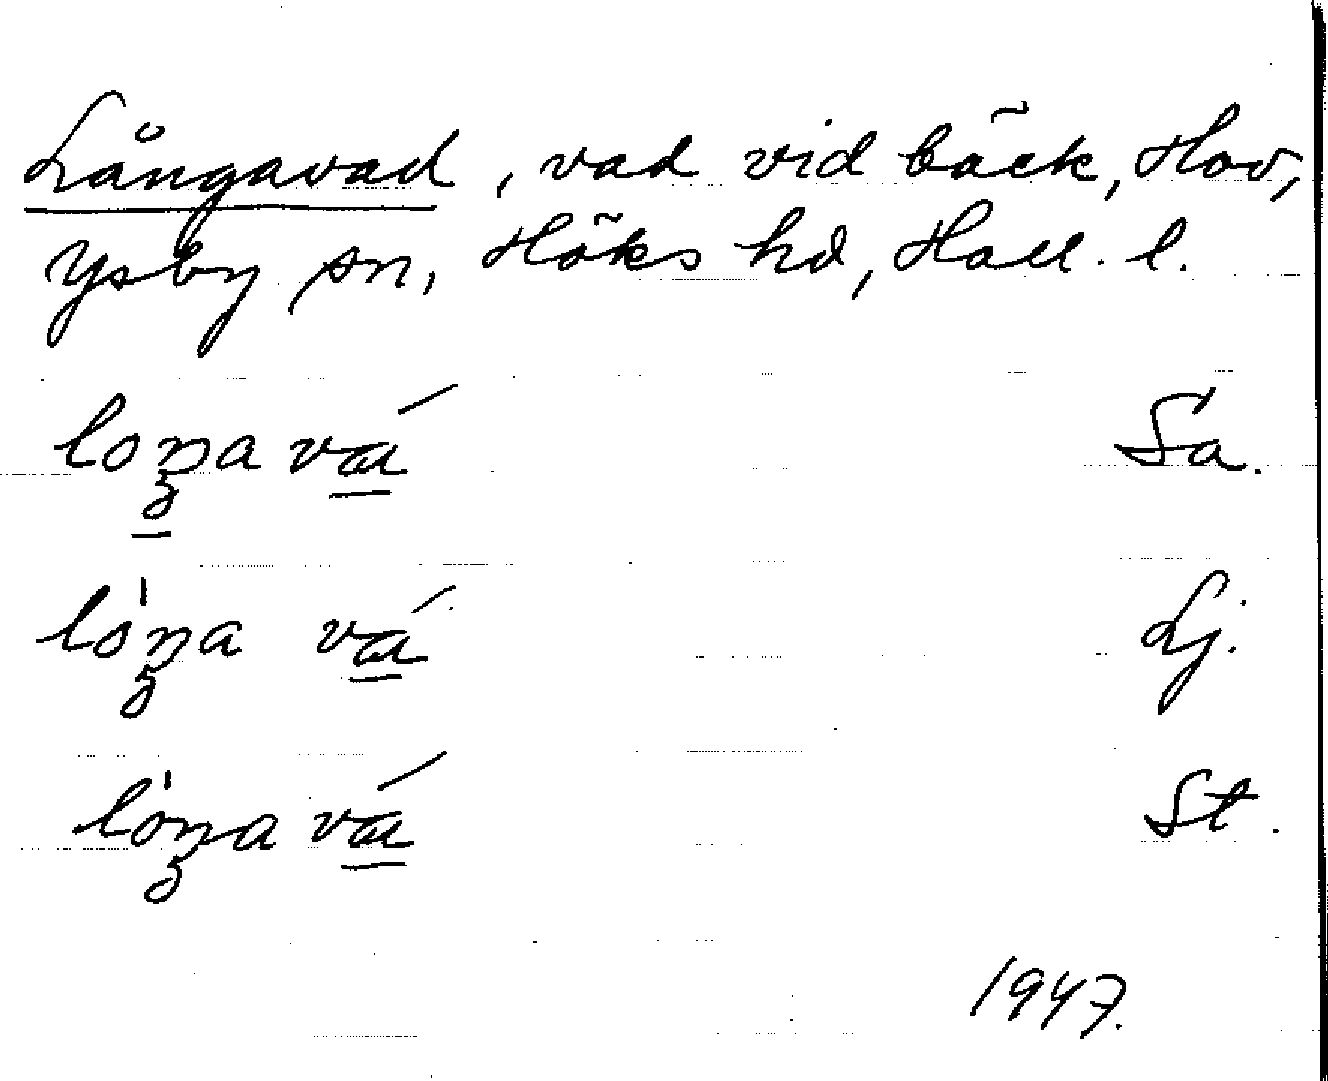 Långavad, vad vid bäck, Hov,
Ysby sn, Höks hd, Hall. l.
loŋa vá Sa.
lóŋa vá Lj.
lóŋa vá St.
1947.